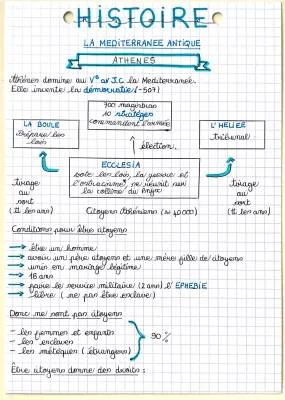 HISTOIRE
LA MEDITERRANEE ANTIQUE
ATHENES
Athènes domine au V° av J.C la Mediterranée.
Elle invente la démocratie (-507)
700 magistrats
10 stratèges
commandent l'armée
LA BOULE
Prépare les
lois
L'HELIEE
Tribunal
élection.
ECCLESIA
vote les lois, la guerre et
l'ostracisme, se réunit sur
la colline du Pnyx
tirage
au
sort
(1 an)
tirage
au
sort
(1 an)
Citoyens Athéniens (≈ 40000)
Conditions pour être citoyens
→ être un homme
→ avoir un père citoyen et une mère fille de citoyens
→ unis en mariage légitime
→ 18 ans
→ faire le service militaire (2 ans) l'EPHEBIE
→ libre (ne pas être esclave)
Donc ne sont pas citoyens
- les femmes et enfants
- les esclaves
- les métèques (étrangers)
90 %
Être citoyens donne des droits :